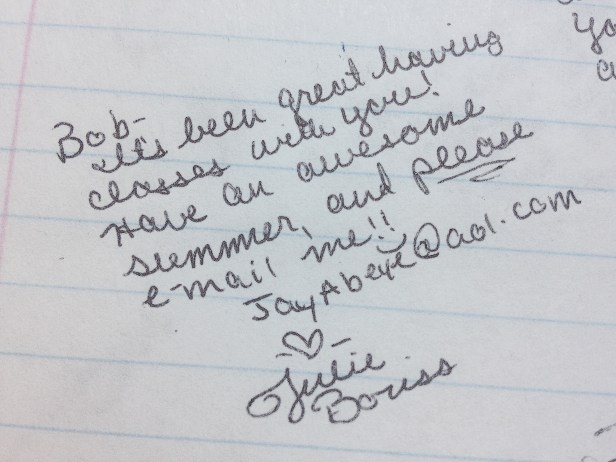 Bob-
It's been great having
classes with you!
Have an awesome
summer, and please
e-mail me!!
JayAbeye@aol.com
♡ Julie
Boriss